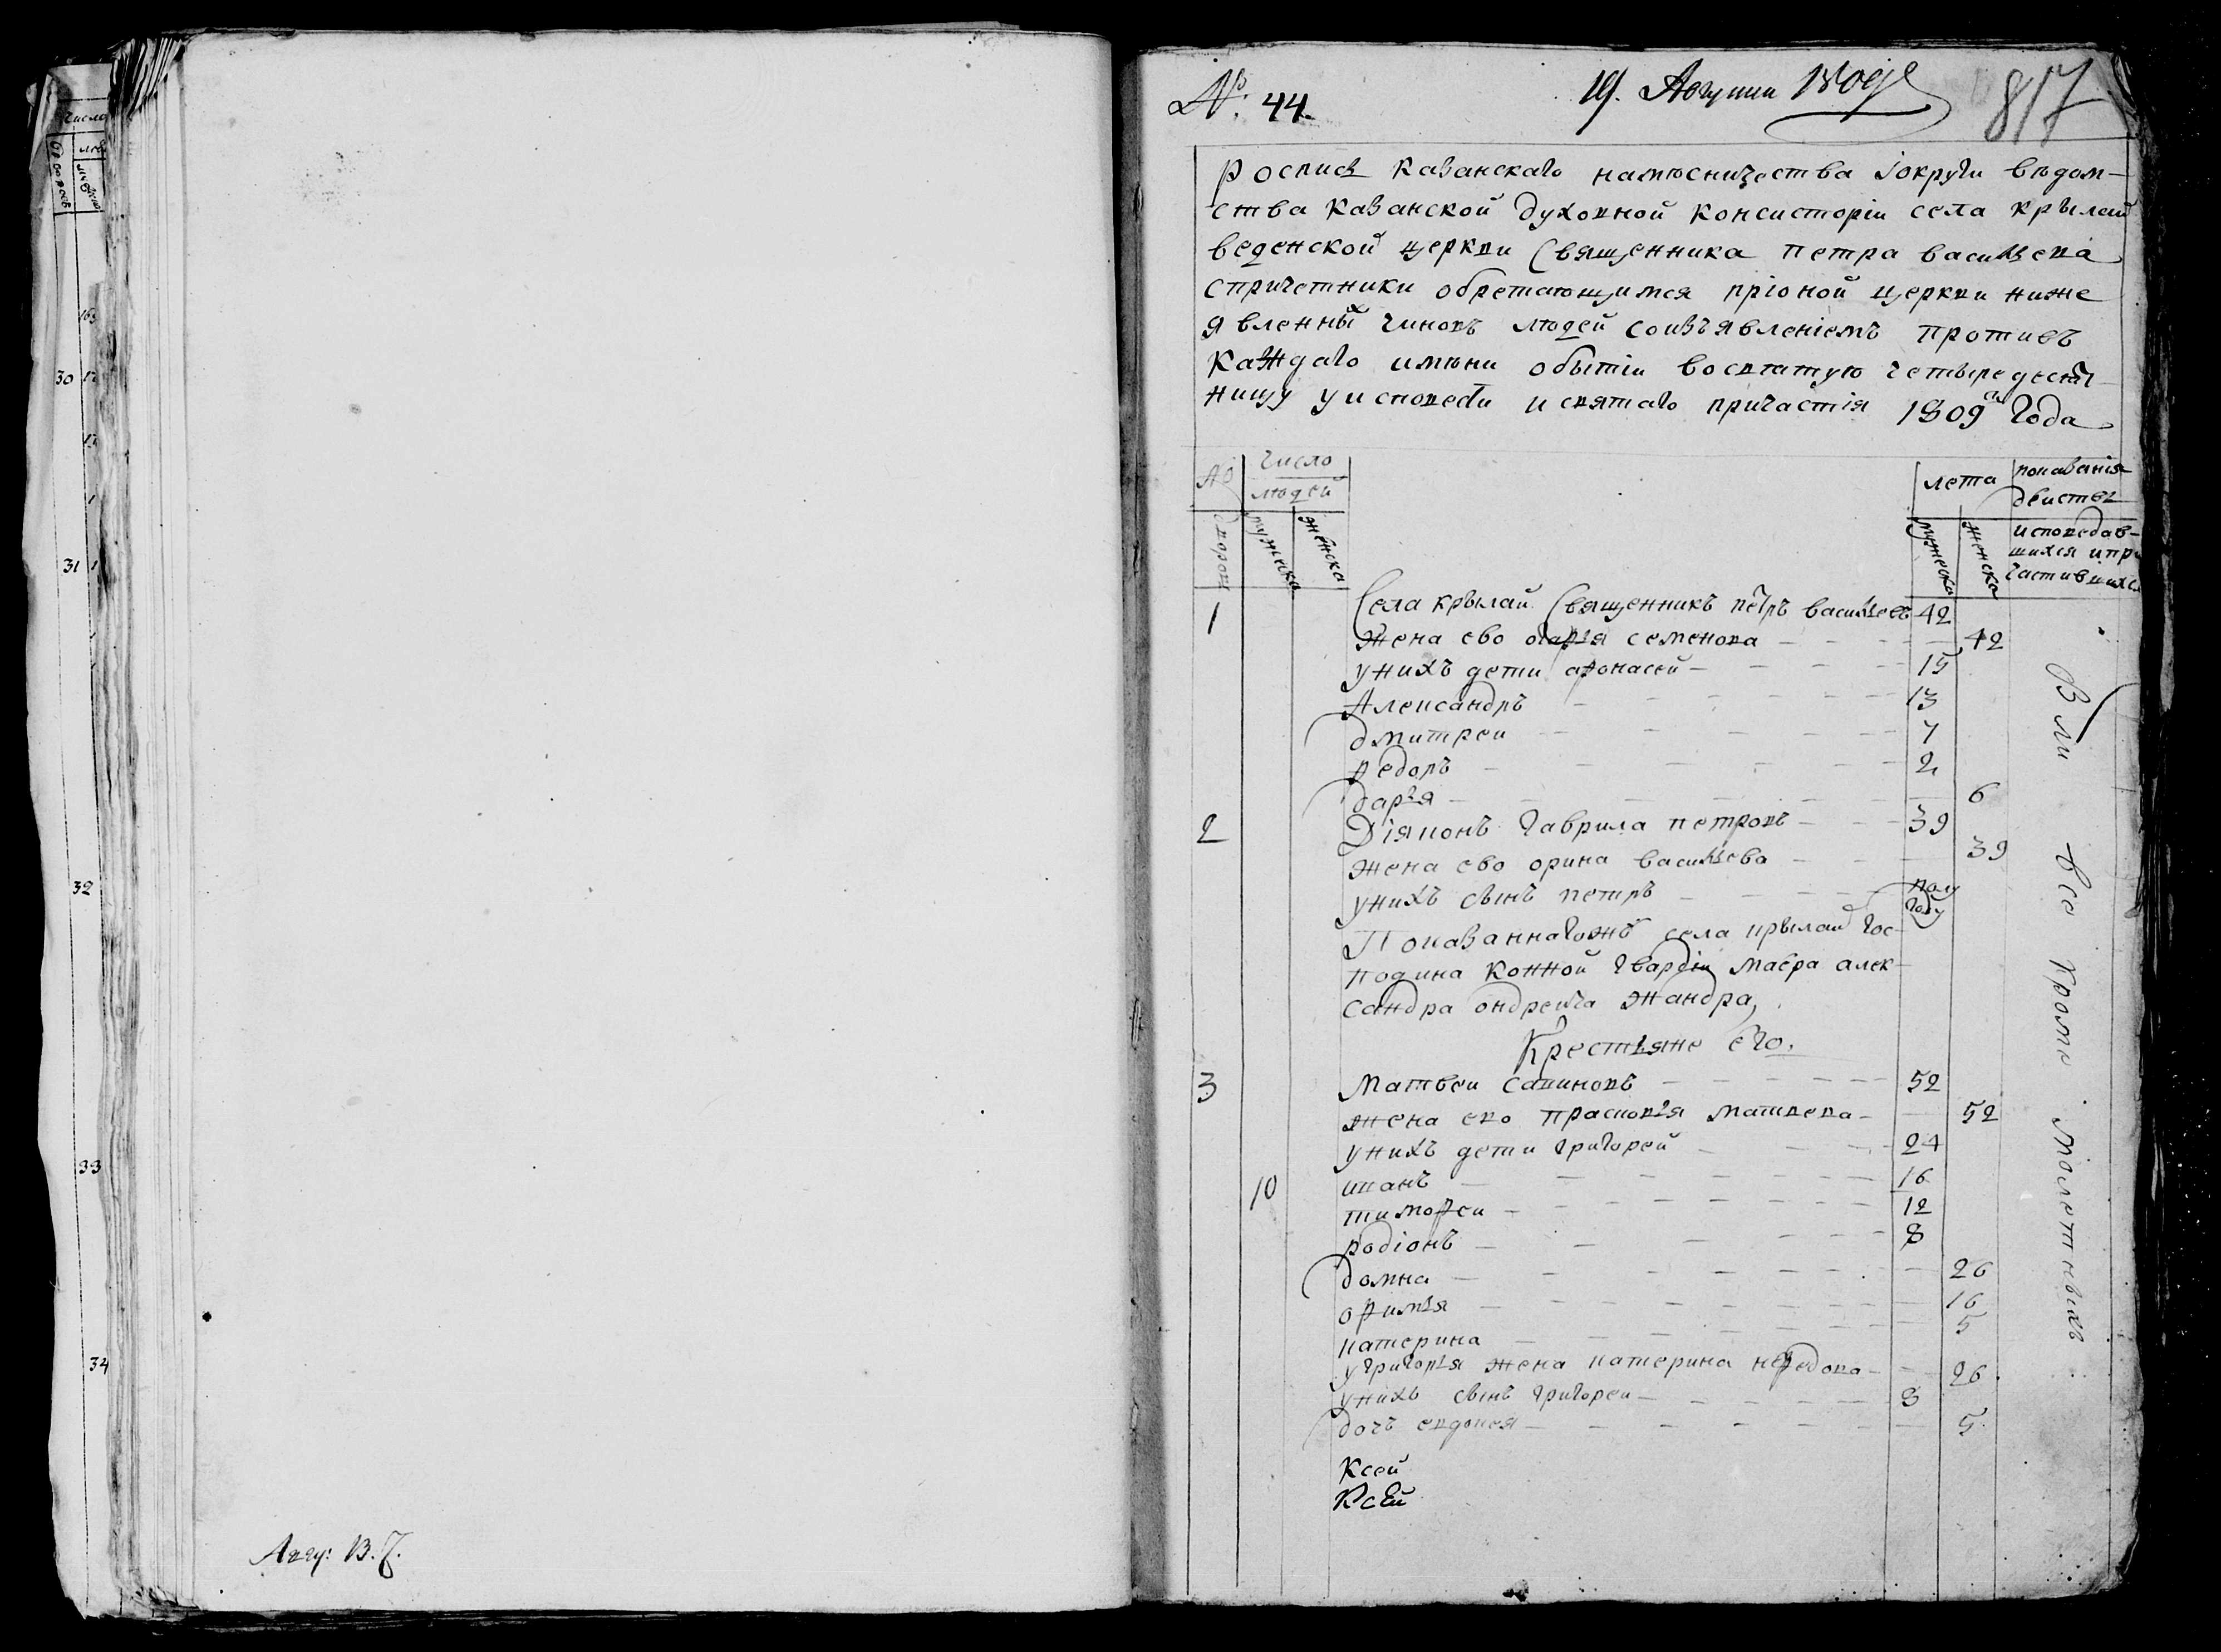 Число
30
31
32
33
34
Авгу: 13. 7.
№. 44.
19. Августа 1809е
817
Роспись Казанскаго наместничества іокруги ведом-
ства Казанской духовной консисторіи села крылай
веденской церкви Священника петра васильева
спричетники обретающимся пріоной церкви ниже
явленны чиновъ людей соизъявленіемъ противъ
каждаго имени обытіи восвятую четыредесят-
ницу уисповеди исвятаго причастія 1809 года
число
людей
дворовъ
мужеска
женска
лета
мужеска
женска
показанія
действъ
исповедав-
шихся ипри
частившихся
1 Села крылай Священникъ петръ васильевъ 42
жена ево дарья семенова 42
унихъ дети афонасей 15
Александръ 13
дмитреи 7
федоръ 2
дарья 6
2 Дьяконъ Гаврила петровъ 39
жена ево орина васильева 39
унихъ сынъ петръ полу году
Показаннагожъ села крылай гос-
подина конной гвардіи маеора алек-
сандра ондреича жандра,
Крестьяне его.
3 матвеи савиновъ 52
жена ево прасковья матвеева 52
унихъ дети григорей 24
10 иванъ 16
тимофеи 12
родіонъ 8
домна 26
офимья 16
катерина 5
угригорья жена катерина нефедова 26
унихъ сынъ григореи 8
дочь евдокея 5
Ксей
Ксей
все кроме молетныхъ